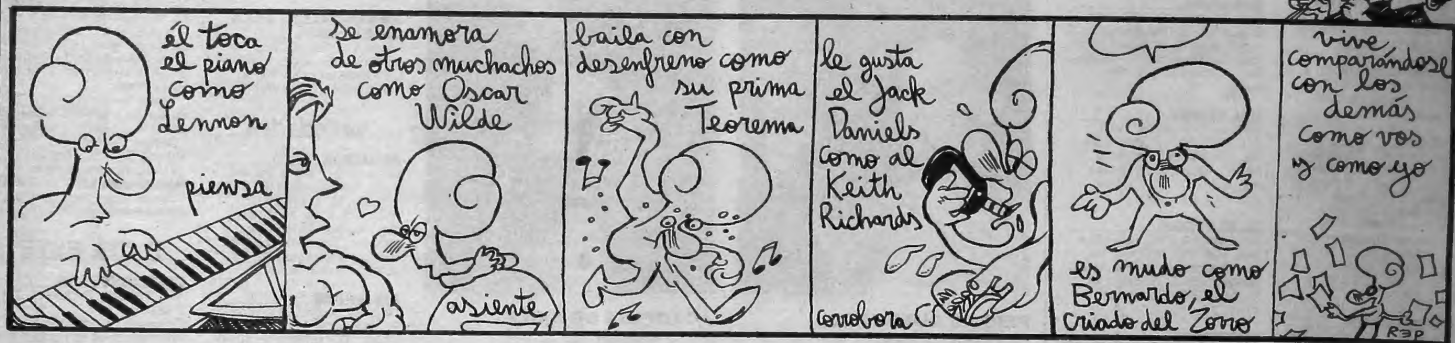 él toca
el piano
como
Lennon
piensa
se enamora
de otros muchachos
como Oscar
Wilde
asiente
baila con
desenfreno como
su prima
Teorema
le gusta
el Jack
Daniels
como al
Keith
Richards
corrobora
es mudo como
Bernardo, el
criado del Zorro
vive,
comparándose
con los
demás
como vos
y como yo
REP